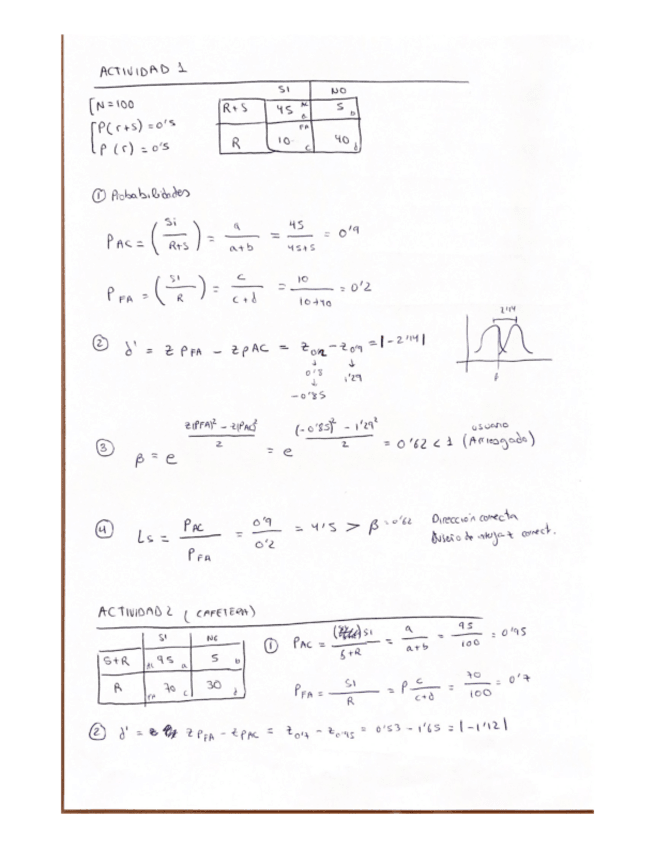 ACTIVIDAD 1
SI NO
N=100
R+S 45 AC a 5 b
P(r+s) = 0'5
FA
P(r) = 0'5
R 10 c 40 d
① Probabilidades
P AC = (Si / R+S) = a / a+b = 45 / 45+5 = 0'9
P FA = (SI / R) = c / c+d = 10 / 10+40 = 0'2
2'14
② d' = Z P FA - Z P AC = Z 0'2 - Z 0'9 = |-2'14|
0'8 1'29
-0'85
③ β = e z(PFA)² - z(PAC)² / 2 = e (-0'85)² - 1'29² / 2 = 0'62 < 1 (Arriesgado)
usuario
④ Ls = P AC / P FA = 0'9 / 0'2 = 4'5 > β = 0'62 Dirección correcta
Diseño de correct.
ACTIVIDAD 2 (CAFETERA)
SI NO
S+R AC 95 a 5 b
R FA 70 c 30 d
① P AC = SI / S+R = a / a+b = 95 / 100 = 0'95
P FA = SI / R = P c / c+d = 70 / 100 = 0'7
② d' = Z P FA - Z P AC = Z 0'7 - Z 0'95 = 0'53 - 1'65 = |-1'12|